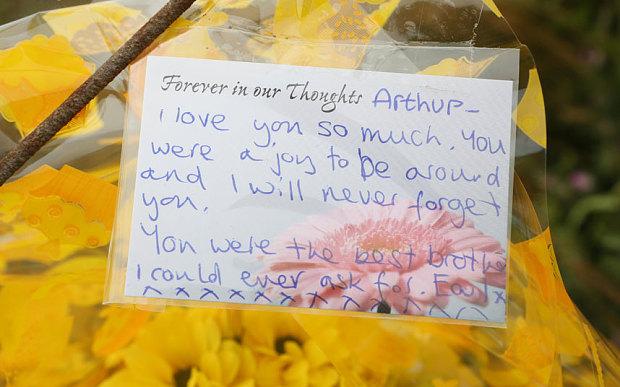 Forever in our Thoughts Arthur-
I love you so much. You
were a joy to be around
and I will never forget
you.
You were the best brothe
I could ever ask for.
x x x x x x x x x x x x